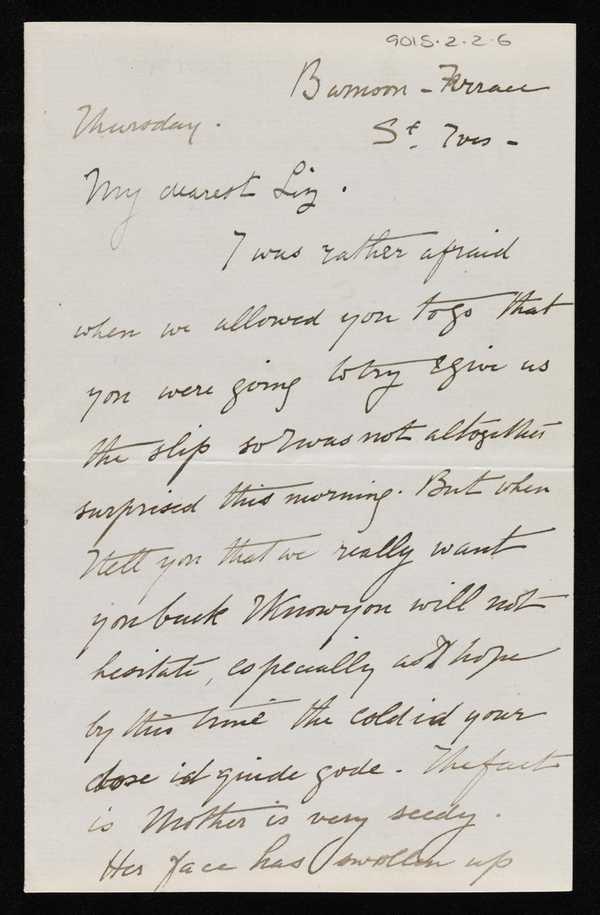 9015.2.2.6
Barnoon - Terrace
Thursday.
St. Ives -
My dearest Liz.
I was rather afraid
when we allowed you to go that
you were going to try & give us
the slip so I was not altogether
surprised this morning. But when
I tell you that we really want
you back I know you will not
hesitate, especially as I hope
by this time the cold id your
dose id quide gode. The fact
is Mother is very seedy.
Her face has swollen up